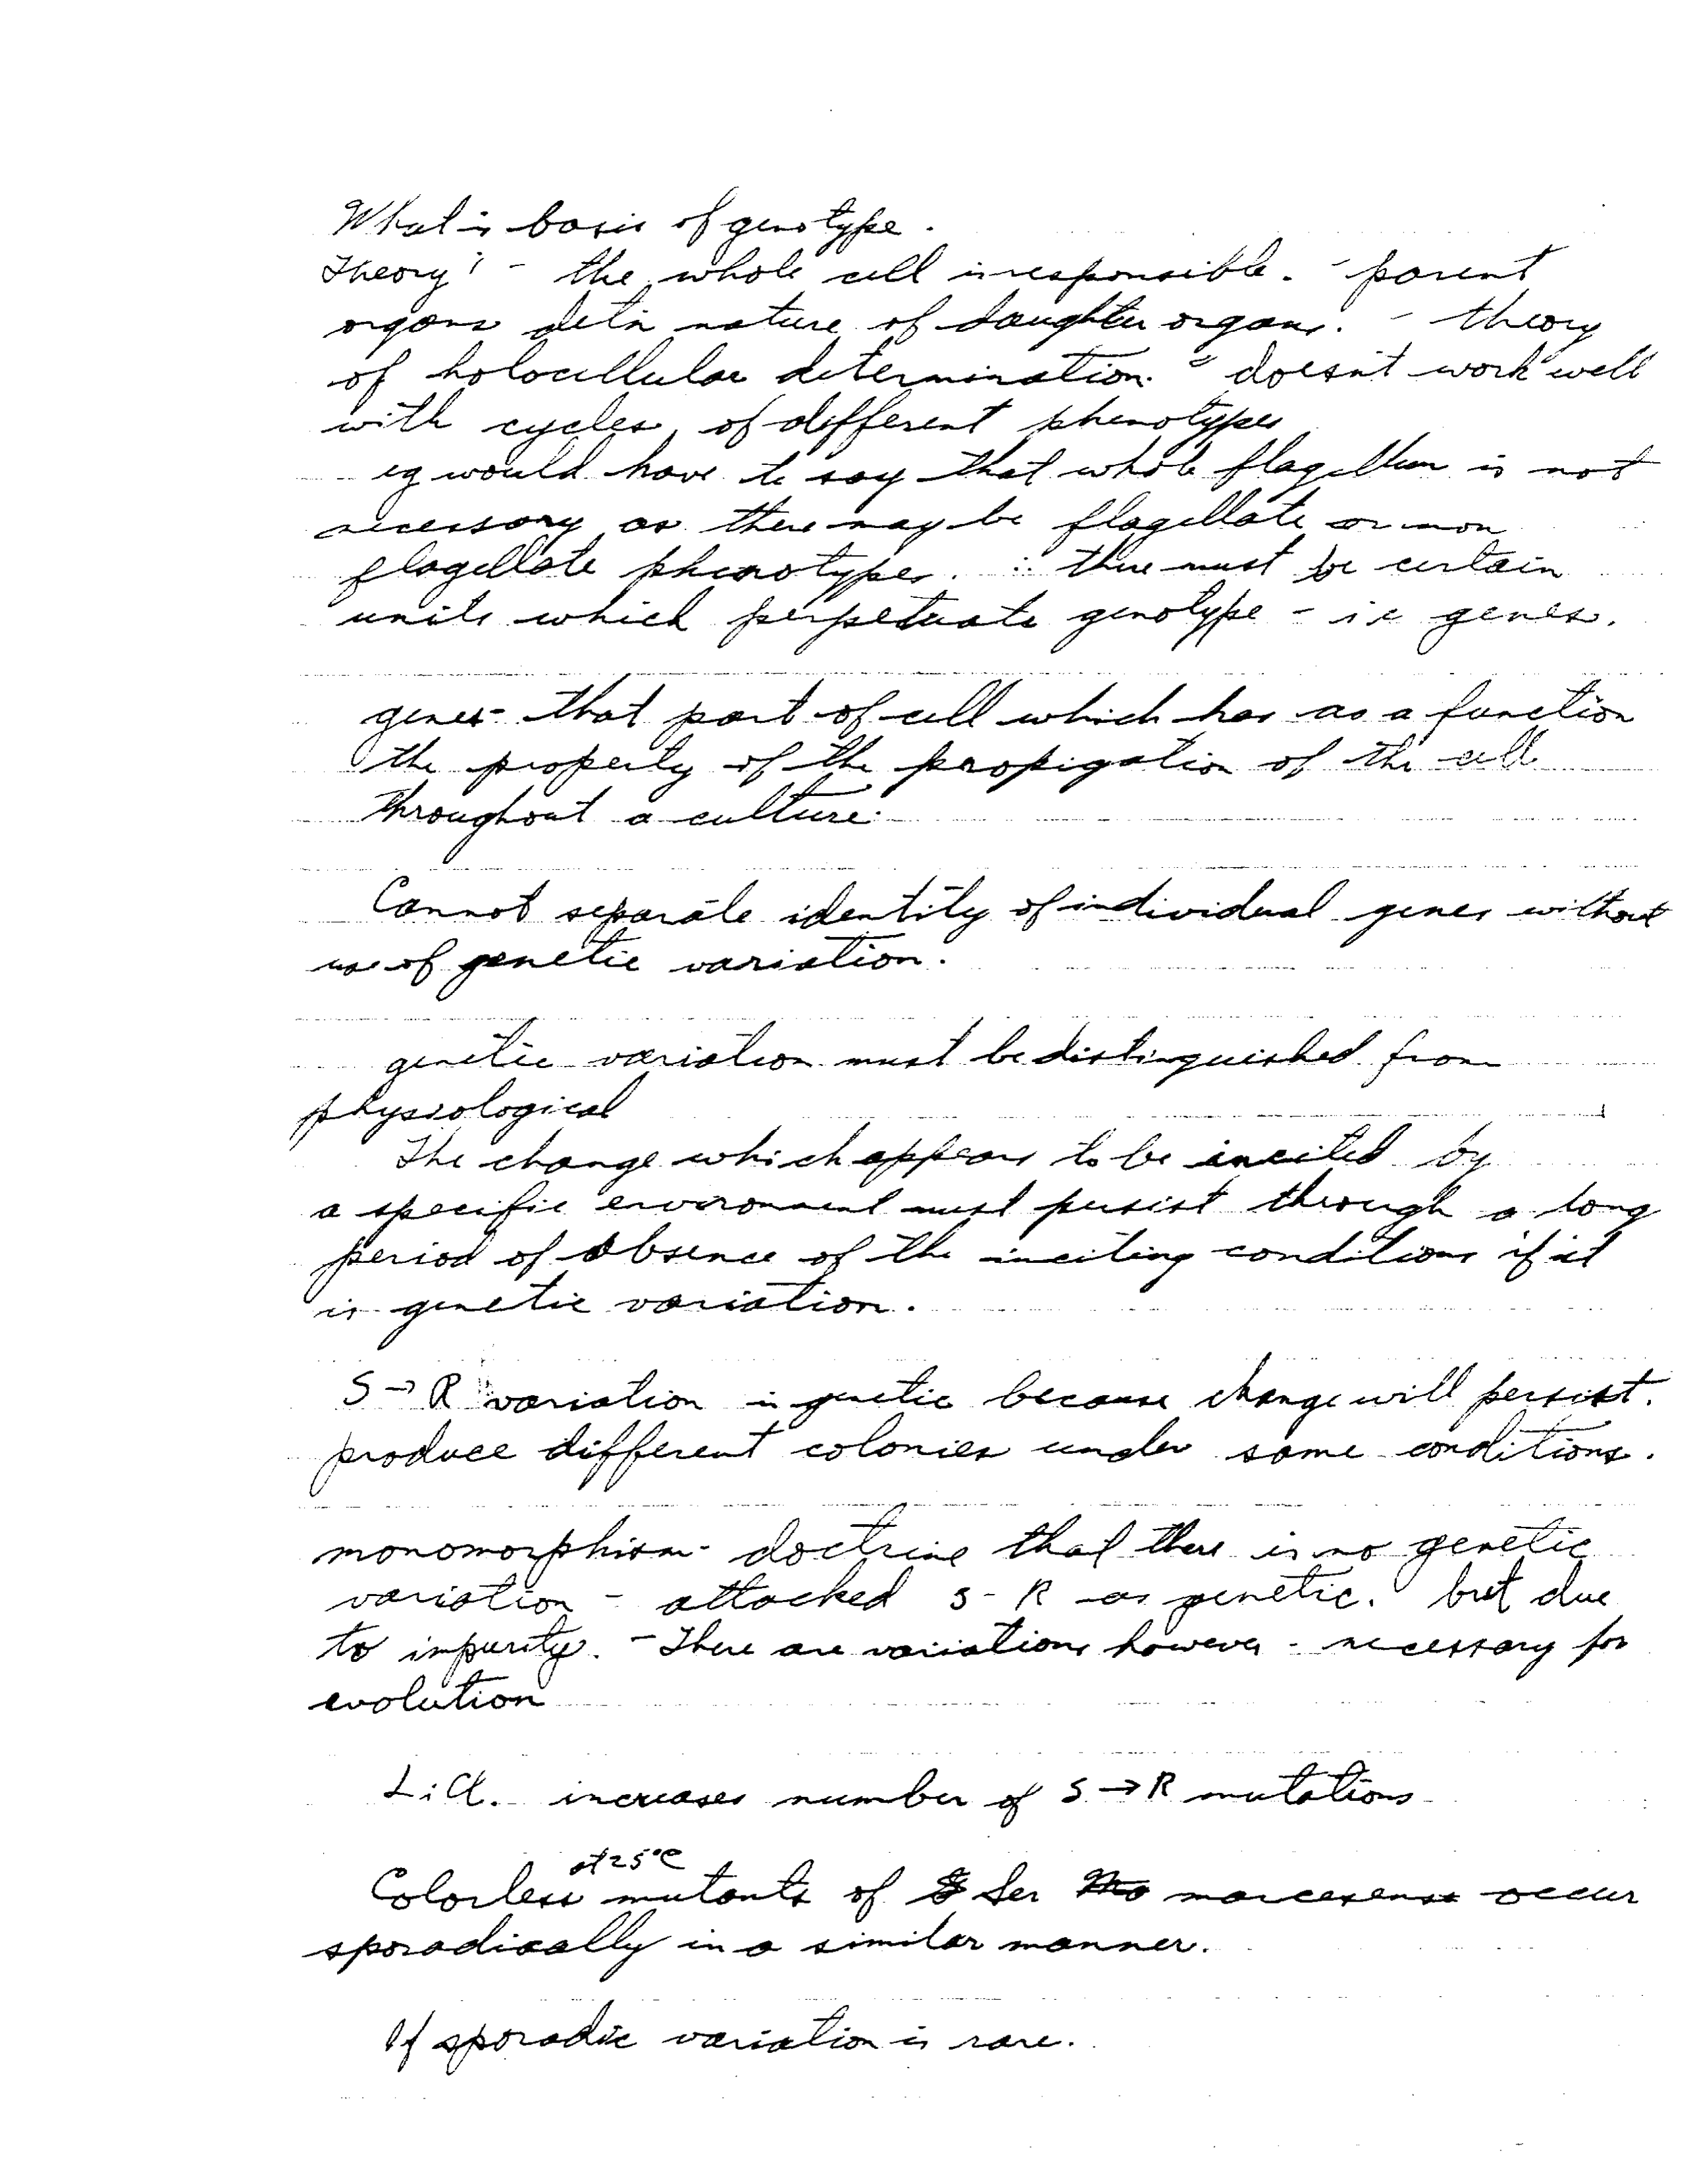 What is basis of genotype.
Theory :- the whole cell is responsible. - parent
organs detn nature of daughter organs. - theory
of holocellular determination. - doesn't work well
with cycles of different phenotypes
eg would have to say that whole flagellum is not
necessary as there may be flagellate or non
flagellate phenotypes. ∴ there must be certain
units which perpetuate genotype - ie genes.
genes - that part of cell which has as a function
the property of the propigation of the cell
throughout a culture.
Cannot separate identity of individual genes without
use of genetic variation.
genetic variation must be distinguished from
physiological
The change which appears to be incited by
a specific environment must persist through a long
period of absence of the inciting conditions if it
is genetic variation.
S → R variation is genetic because change will persist.
produce different colonies under same conditions.
monomorphism - doctrine that there is no genetic
variation - attacked S - R as genetic. but due
to impurity. - There are variations however - necessary for
evolution
LiCl. increases number of S → R mutations
at 25°C
Colorless mutants of Ser marcesens occur
sporadically in a similar manner.
If sporadic variation is rare.